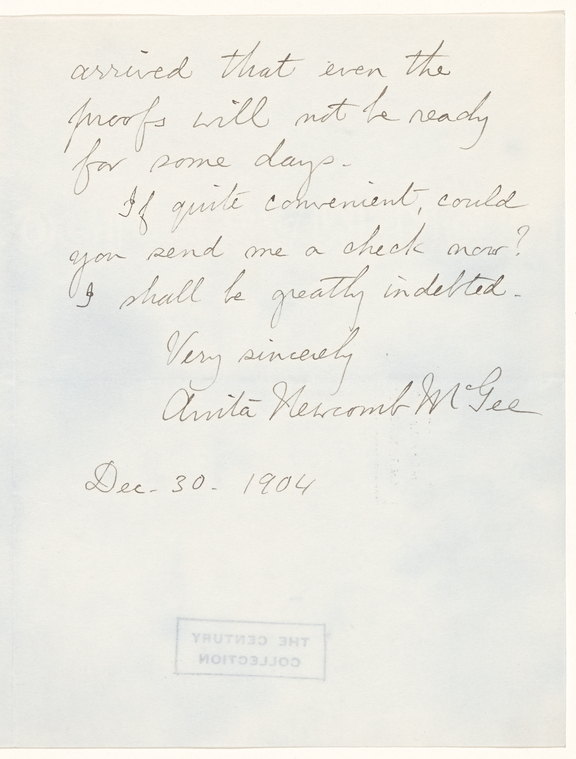 arrived that even the
proofs will not be ready
for some days.
If quite convenient, could
you send me a check now?
I shall be greatly indebted.
Very sincerely
Anita Newcomb McGee
Dec. 30. 1904
THE CENTURY
COLLECTION